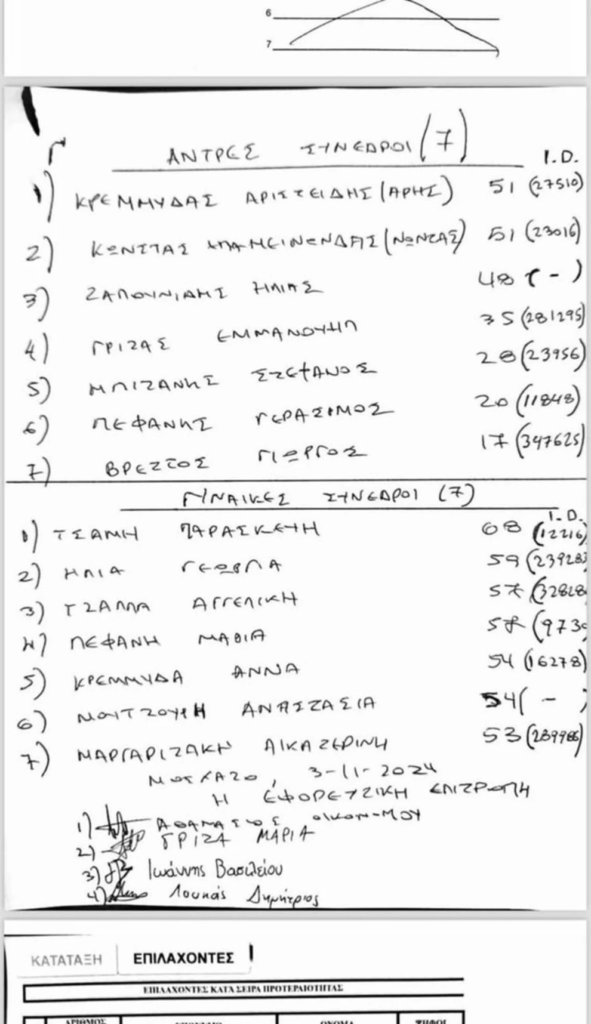 6
7
ΑΝΤΡΕΣ ΣΥΝΕΔΡΟΙ (7) I.D.
1) ΚΡΕΜΜΥΔΑΣ ΑΡΙΣΤΕΙΔΗΣ (ΑΡΗΣ) 51 (27510)
2) ΚΩΝΣΤΑΣ ΕΠΑΜΕΙΝΩΝΔΑΣ (ΝΩΝΤΑΣ) 51 (23016)
3) ΖΑΠΟΥΝΙΔΗΣ ΗΛΙΑΣ 48 ( - )
4) ΓΡΙΖΑΣ ΕΜΜΑΝΟΥΗΛ 35 (281295)
5) ΜΠΙΖΑΝΗΣ ΣΤΕΦΑΝΟΣ 28 (23956)
6) ΠΕΦΑΝΗΣ ΓΕΡΑΣΙΜΟΣ 20 (11848)
7) ΒΡΕΤΤΟΣ ΓΙΩΡΓΟΣ 17 (347625)
ΓΥΝΑΙΚΕΣ ΣΥΝΕΔΡΟΙ (7) I.D.
1) ΤΣΑΜΗ ΠΑΡΑΣΚΕΥΗ 68 (12216)
2) ΗΛΙΑ ΓΕΩΡΓΙΑ 59 (23928)
3) ΤΖΑΛΛΑ ΑΓΓΕΛΙΚΗ (32828
4) ΠΕΦΑΝΗ ΜΑΘΙΑ (973
5) ΚΡΕΜΜΥΔΑ ΑΝΝΑ 54 (16278)
6) ΜΟΥΤΖΟΥΡΗ ΑΝΑΣΤΑΣΙΑ 54 ( - )
7) ΜΑΡΓΑΡΙΤΑΚΗ ΑΙΚΑΤΕΡΙΝΗ 53
ΜΟΣΧΑΤΟ, 3-11-2024
Η ΕΦΟΡΕΥΤΙΚΗ ΕΠΙΤΡΟΠΗ
1) ΑΘΑΝΑΣΙΟΣ ΟΙΚΟΝ-ΜΟΥ
2) ΓΡΙΖΑ ΜΑΡΙΑ
3) Ιωάννης Βασιλείου
4) Λουκάς Δημήτριος
ΚΑΤΑΤΑΞΗ ΕΠΙΛΑΧΟΝΤΕΣ
ΕΠΙΛΑΧΟΝΤΕΣ ΚΑΤΑ ΣΕΙΡΑ ΠΡΟΤΕΡΑΙΟΤΗΤΑΣ
ΑΡΙΘΜΟΣ ΟΝΟΜΑ ΨΗΦΟΙ